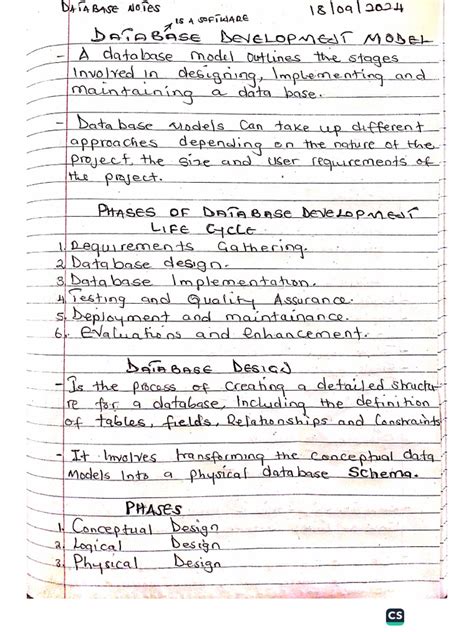 DATABASE NOTES 18/09/2024
IS A SOFTWARE
DATABASE DEVELOPMENT MODEL
- A database model outlines the stages
Involved in designing, Implementing and
maintaining a data base.
- Database Models Can take up different
approaches depending on the nature of the
project, the size and user requirements of
the project.
PHASES OF DATABASE DEVELOPMENT
LIFE CYCLE
1. Requirements Gathering.
2. Database design.
3. Database Implementation.
4. Testing and Quality Assurance.
5. Deployment and maintainance.
6. Evaluations and enhancement.
DATABASE DESIGN
- Is the process of creating a detailed structu-
re for a database, Including the definition
of tables, fields, Relationships and Constraints
- It Involves transforming the Conceptual data
Models Into a physical database Schema.
PHASES
1. Conceptual Design
2. Logical Design
3. Physical Design
CS